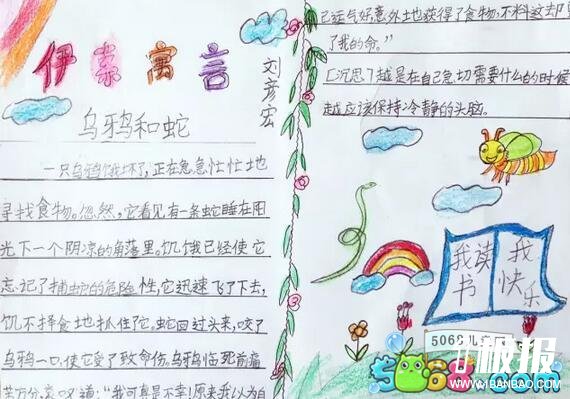 伊索寓言
刘彦宏
乌鸦和蛇
一只乌鸦饿坏了,正在急急忙忙地
寻找食物。忽然,它看见有一条蛇睡在阳
光下一个阴凉的角落里。饥饿已经使它
忘记了捕蛇的危险性,它迅速飞了下去,
饥不择食地抓住了它。蛇回过头来,咬了
乌鸦一口,使它受了致命伤。乌鸦临死前痛
苦万分,哀叹道:“我可真是不幸!原来我以为自
己运气好,意外地获得了食物,不料这却
了我的命。”
[沉思]越是在自己急切需要什么的时候
越应该保持冷静的头脑。
我读书
我快乐
5068儿
5068.com
板报
WWW.1BANBAO.COM